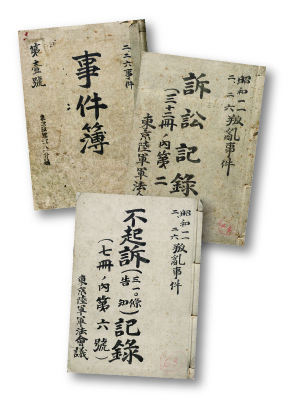 二二六事件
事件簿
第壹號
昭和一一
二、二六 叛亂事件
訴訟記錄
(三十三冊ノ內第二
東京陸軍軍法
昭和一一
二、二六 叛亂事件
不起訴(三一〇條告知)記錄
(七冊ノ內第六號)
東京陸軍軍法會議